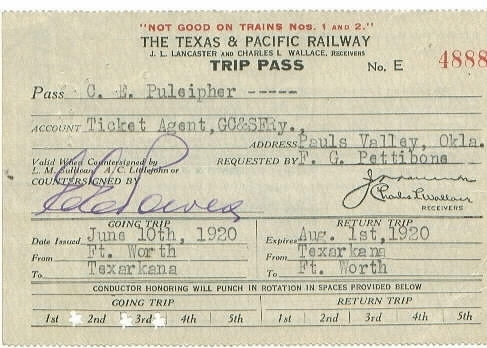 "NOT GOOD ON TRAINS Nos. 1 AND 2."
THE TEXAS & PACIFIC RAILWAY
J. L. LANCASTER AND CHARLES L WALLACE, RECEIVERS
TRIP PASS No. E 4888
Pass C. E. Puleipher -----
ACCOUNT Ticket Agent,GC&SFRy.,
ADDRESS Pauls Valley, Okla.
Valid When Countersigned by REQUESTED BY F. G. Pettibone
L. M. Sullivan, A/C. Littlejohn or
COUNTERSIGNED BY
Charles L Wallace
RECEIVERS
GOING TRIP RETURN TRIP
Date Issued June 10th, 1920 Expires Aug. 1st, 1920
From Ft. Worth From Texarkana
To Texarkana To Ft. Worth
CONDUCTOR HONORING WILL PUNCH IN ROTATION IN SPACES PROVIDED BELOW
GOING TRIP RETURN TRIP
1st 2nd 3rd 4th 5th 1st 2nd 3rd 4th 5th